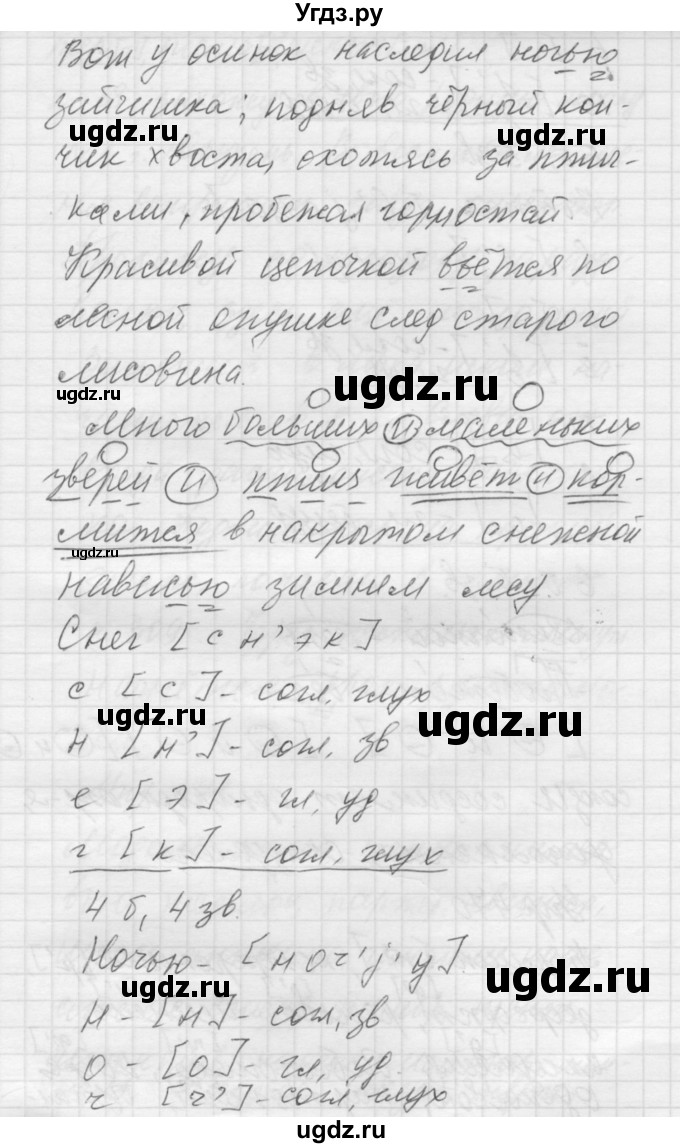 Угдз.ру
Вот у осинок наследил ночью
зайчишка; подняв чёрный кон-
чик хвоста, охотясь за птич-
ками, пробежал горностай.
Красивой цепочкой вьётся по
лесной опушке след старого
лисовина.
Много больших и маленьких
зверей и птиц живёт и кор-
мится в накрытом снежной
навесью зимнем лесу.
Снег [с н' э к]
с [с] - согл, глух
н [н'] - согл, зв
е [э] - гл, уд
г [к] - согл, глух
4 б, 4 зв.
Ночью - [н о ч' j' у]
н - [н] - согл, зв
о - [о] - гл, уд.
ч [ч'] - согл, глух
ugdz.ru
ugdz.ru
ugdz.ru
ugdz.ru
ugdz.ru
ugdz.ru
ugdz.ru
ugdz.ru
ugdz.ru
ugdz.ru
ugdz.ru
ugdz.ru
ugdz.ru
ugdz.ru